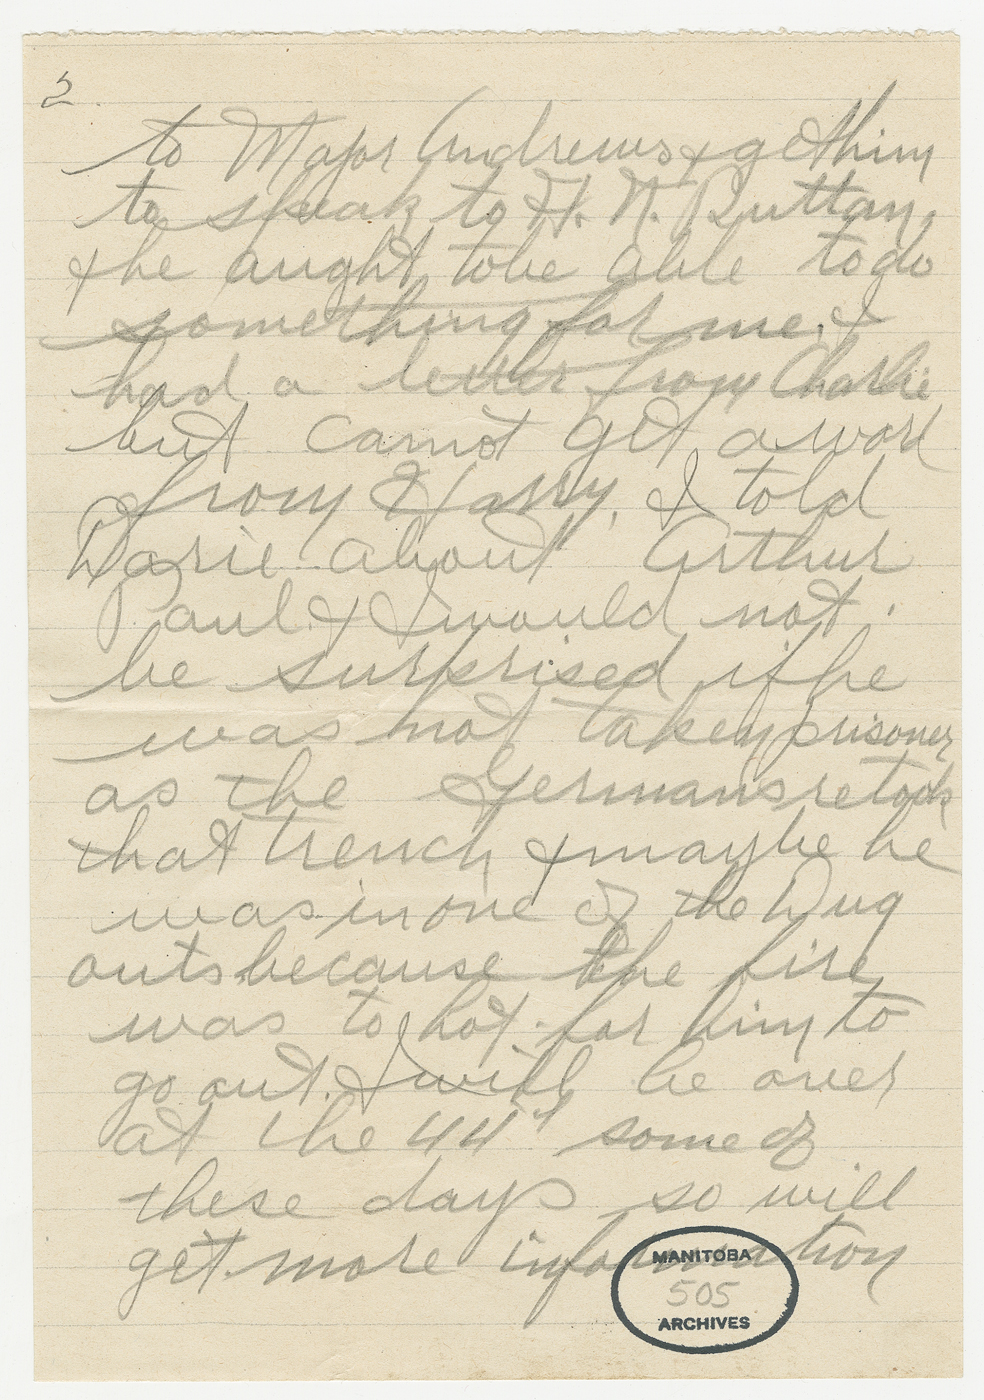 2
to Major Andrews & get him
to speak to H. N. Ruttan,
& he aught to be able to do
something for me. I
had a letter from Charlie
but cannot get a word
from Harry, I told
Dorie about Arthur
Paul & I would not
be surprised if he
was not taken prisoner
as the Germans retook
that trench & maybe he
was in one of the Dug
outs because the fire
was to hot for him to
go out. I will be over
at the 44th some of
these days so will
get more information
MANITOBA
505
ARCHIVES